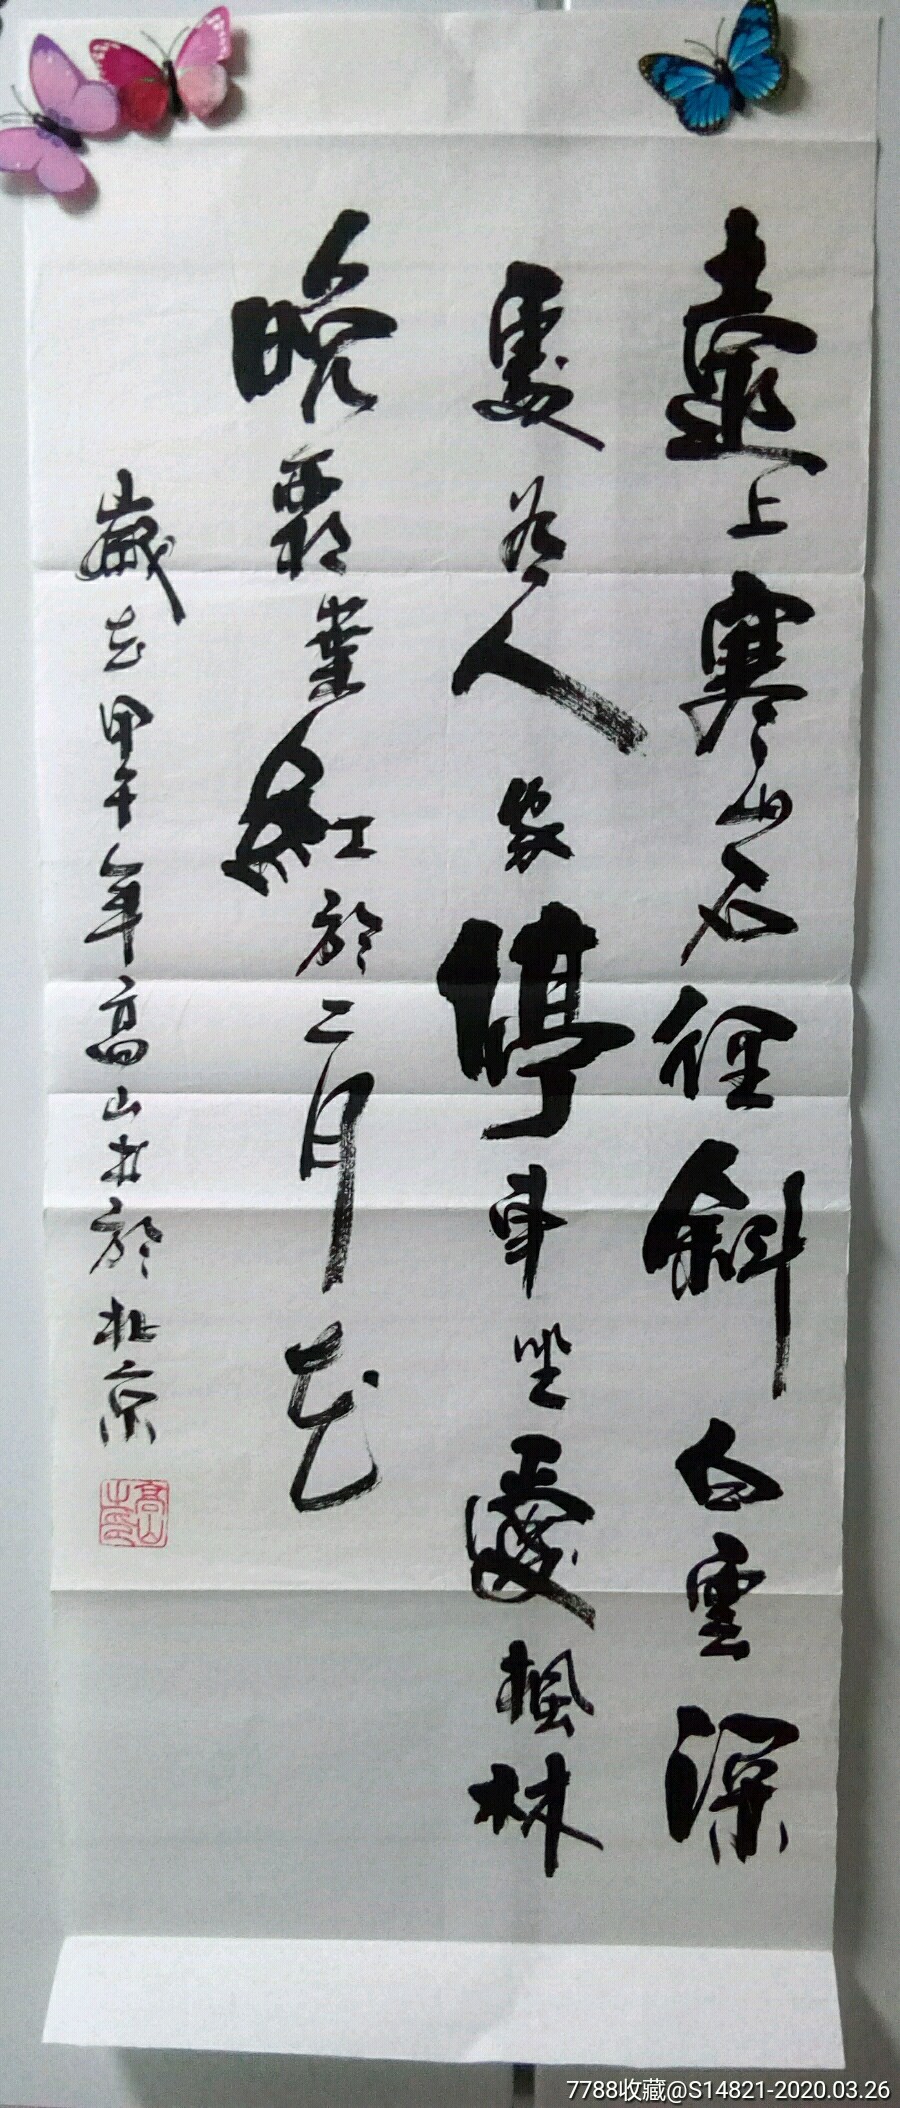 遠上寒山石徑斜白雲深
處有人家停車坐愛楓林
晚霜葉紅於二月花
歲在甲午年高山书於北京
高山之印
7788收藏@S14821-2020.03.26